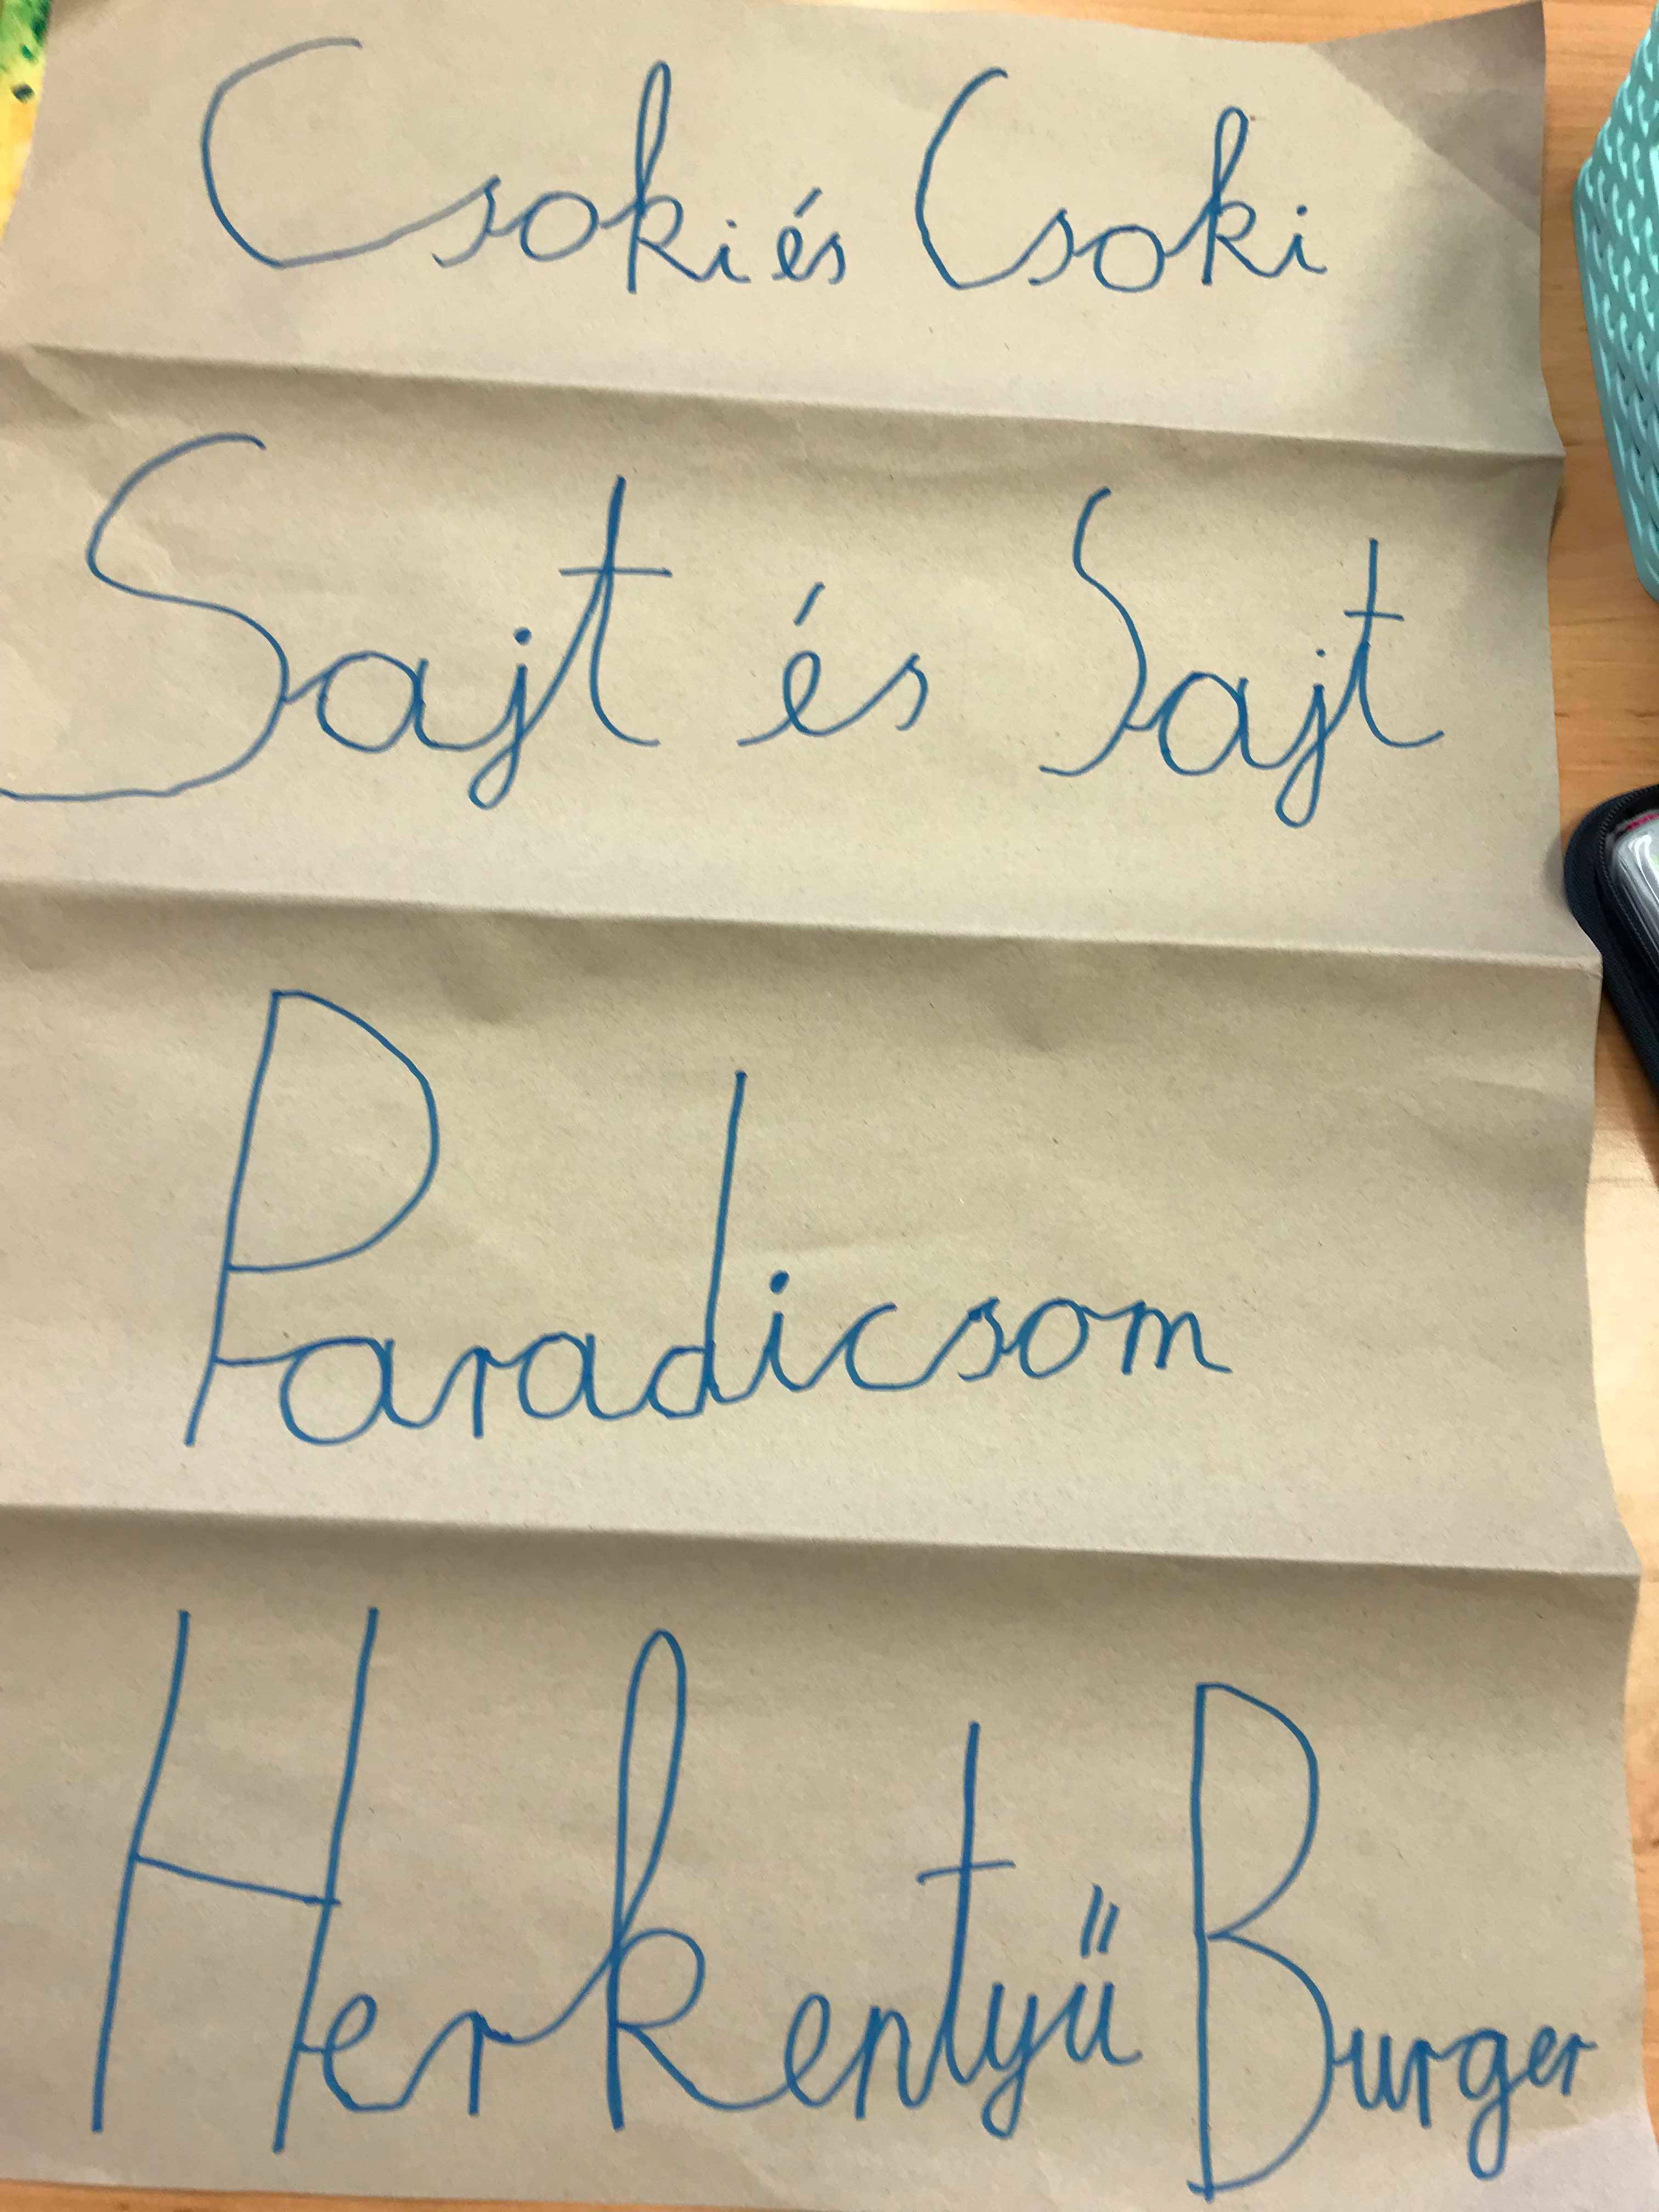 Csoki és Csoki
Sajt és Sajt
Paradicsom
Herkentyű Burger